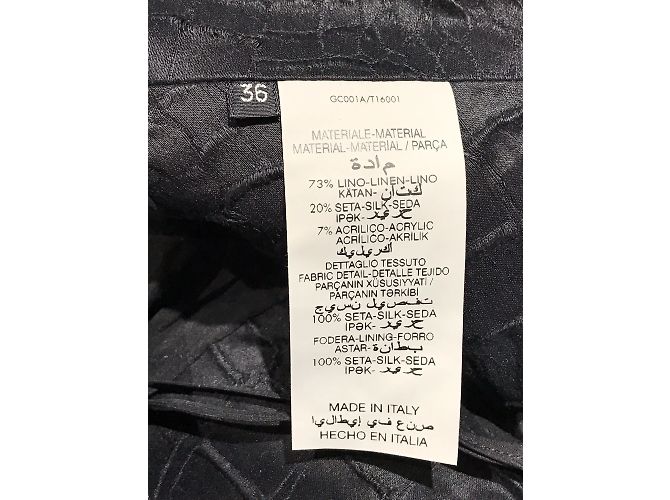 36
GC001A/T16001
MATERIALE-MATERIAL
MATERIAL-MATERIAL / PARÇA
مادة
73% LINO-LINEN-LINO
KƏTAN- كتان
20% SETA-SILK-SEDA
IPƏK- حرير
7% ACRILICO-ACRYLIC
ACRÍLICO-AKRİLİK
أكريليك
DETTAGLIO TESSUTO
FABRIC DETAIL-DETALLE TEJIDO
PARÇANIN XÜSUSIYYATI /
PARÇANIN TƏRKIBI
تفصيل نسيج
100% SETA-SILK-SEDA
IPƏK- حرير
FODERA-LINING-FORRO
ASTAR- بطانة
100% SETA-SILK-SEDA
IPƏK- حرير
MADE IN ITALY
صنع في إيطاليا
HECHO EN ITALIA